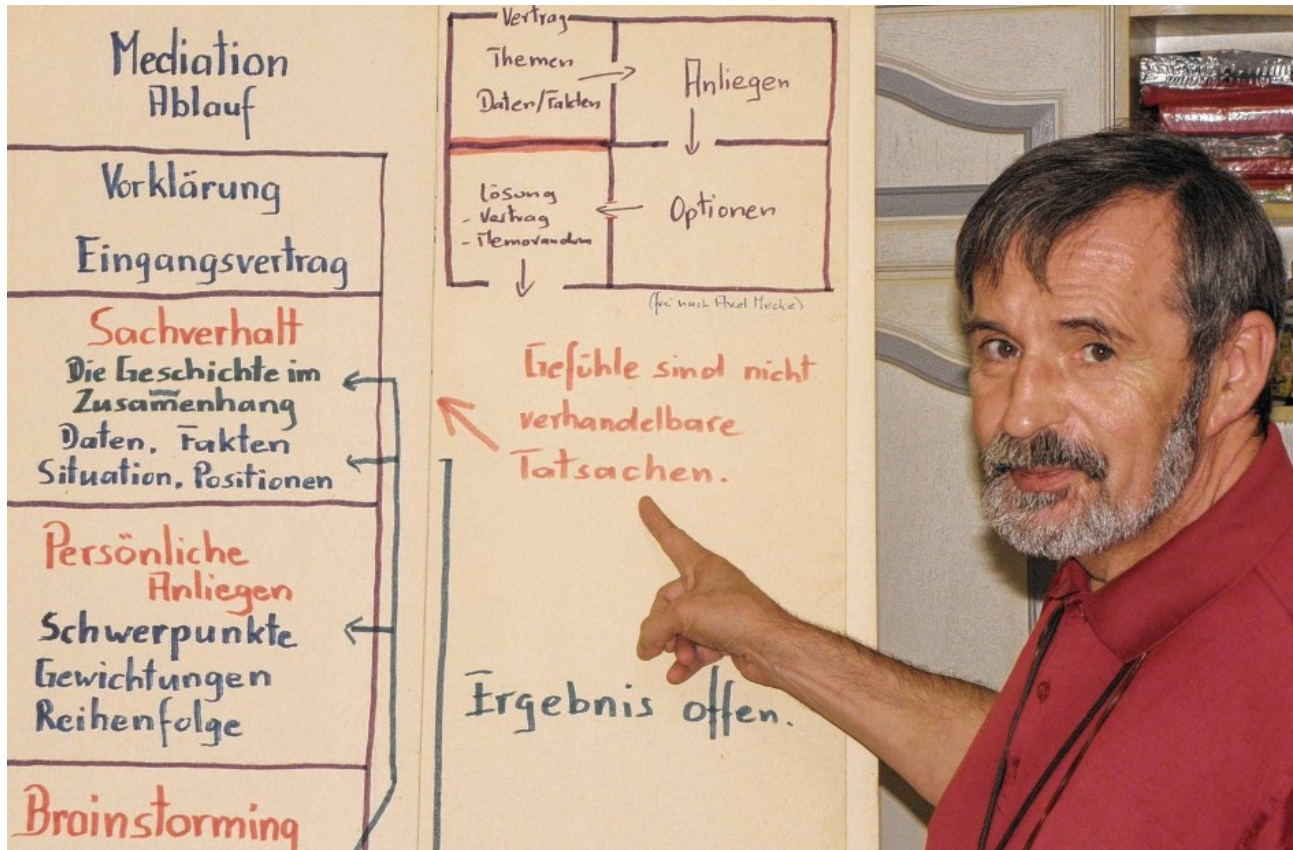 Mediation
Ablauf
Vorklärung
Eingangsvertrag
Sachverhalt
Die Geschichte im
Zusam̅enhang
Daten, Fakten
Situation, Positionen
Persönliche
Anliegen
Schwerpunkte
Gewichtungen
Reihenfolge
Brainstorming
Vertrag
Themen
Daten/Fakten
Anliegen
Lösung
- Vertrag
- Memorandum
Optionen
(frei nach Axel Mecke)
Gefühle sind nicht
verhandelbare
Tatsachen.
Ergebnis offen.